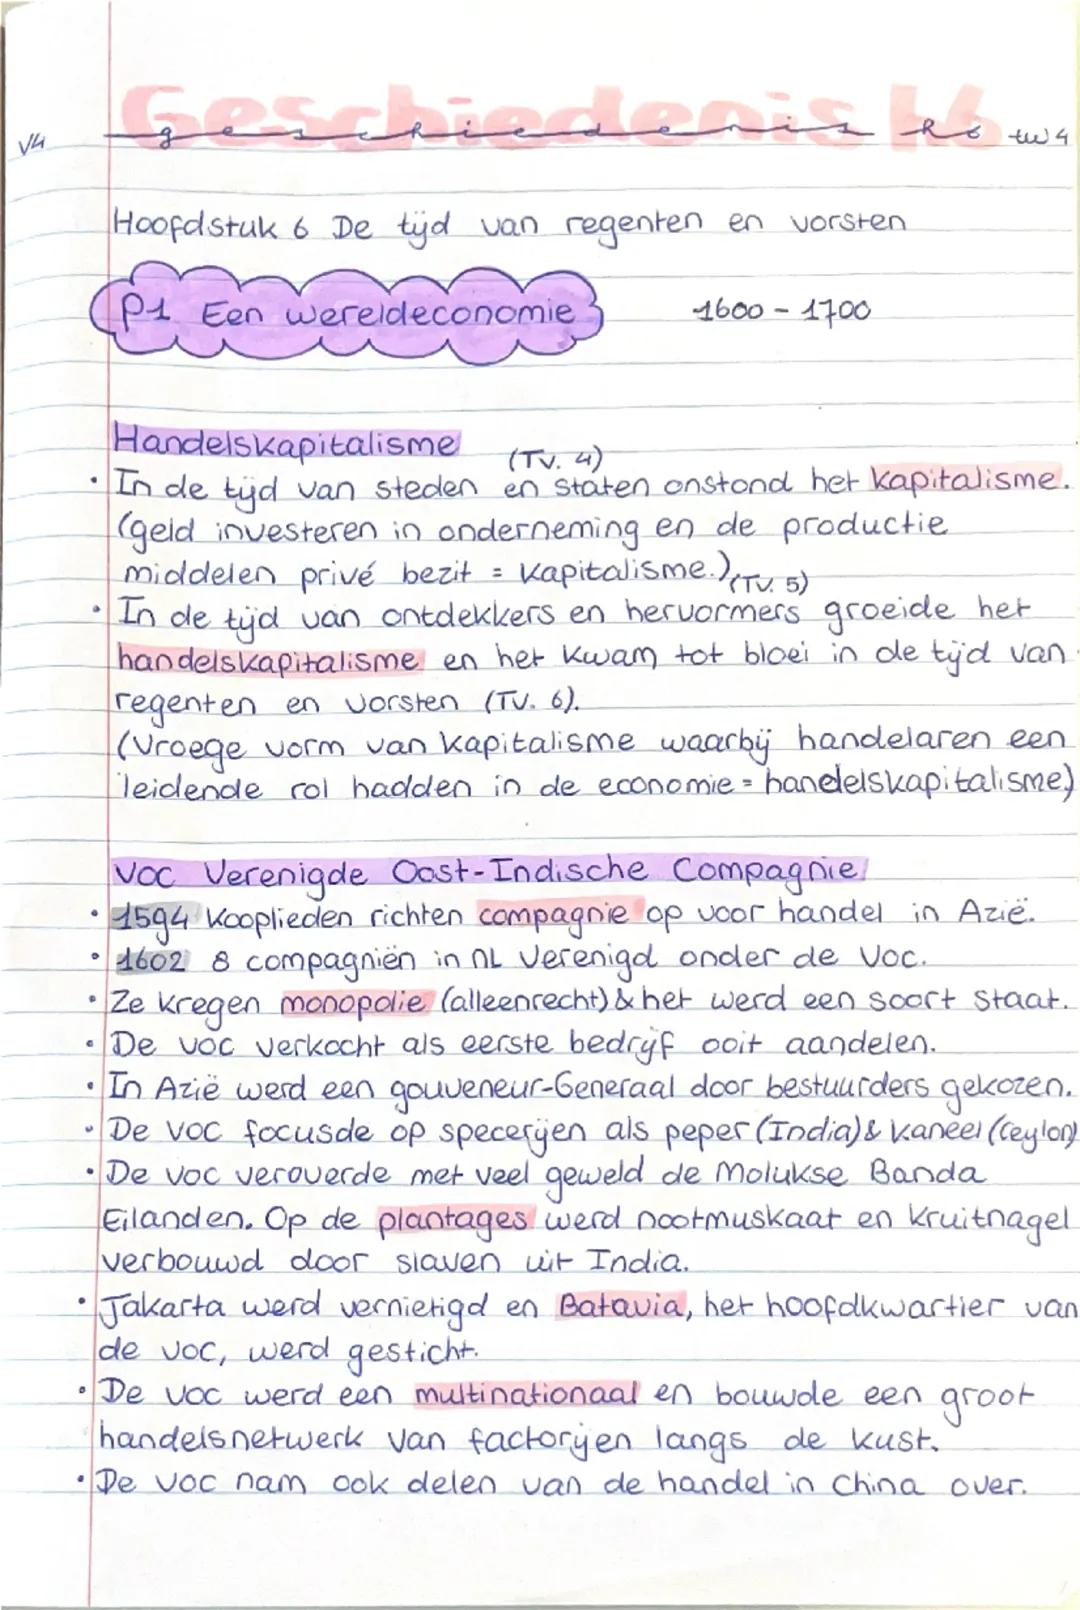 Geschiedenis H6
geschiedenis h6 tw4
V4
Hoofdstuk 6 De tijd van regenten en vorsten
P1 Een wereldeconomie 1600 - 1700
Handelskapitalisme
(TV. 4)
• In de tijd van steden en staten onstond het kapitalisme.
(geld investeren in onderneming en de productie
middelen privé bezit = kapitalisme.) (TV. 5)
• In de tijd van ontdekkers en hervormers groeide het
handelskapitalisme en het kwam tot bloei in de tijd van
regenten en vorsten (TV. 6).
(Vroege vorm van kapitalisme waarbij handelaren een
leidende rol hadden in de economie = handelskapitalisme)
VOC Verenigde Oost-Indische Compagnie
• 1594 Kooplieden richten compagnie op voor handel in Azië.
• 1602 8 compagniën in NL Verenigd onder de VOC.
• Ze kregen monopolie (alleenrecht) & het werd een soort staat.
• De VOC verkocht als eerste bedrijf ooit aandelen.
• In Azië werd een gouveneur-Generaal door bestuurders gekozen.
• De VOC focusde op specerijen als peper (India) & kaneel (Ceylon)
• De VOC veroverde met veel geweld de Molukse Banda
Eilanden. Op de plantages werd nootmuskaat en kruitnagel
verbouwd door slaven uit India.
• Jakarta werd vernietigd en Batavia, het hoofdkwartier van
de VOC, werd gesticht.
• De VOC werd een multinationaal en bouwde een groot
handelsnetwerk van factorijen langs de kust.
• De VOC nam ook delen van de handel in China over.